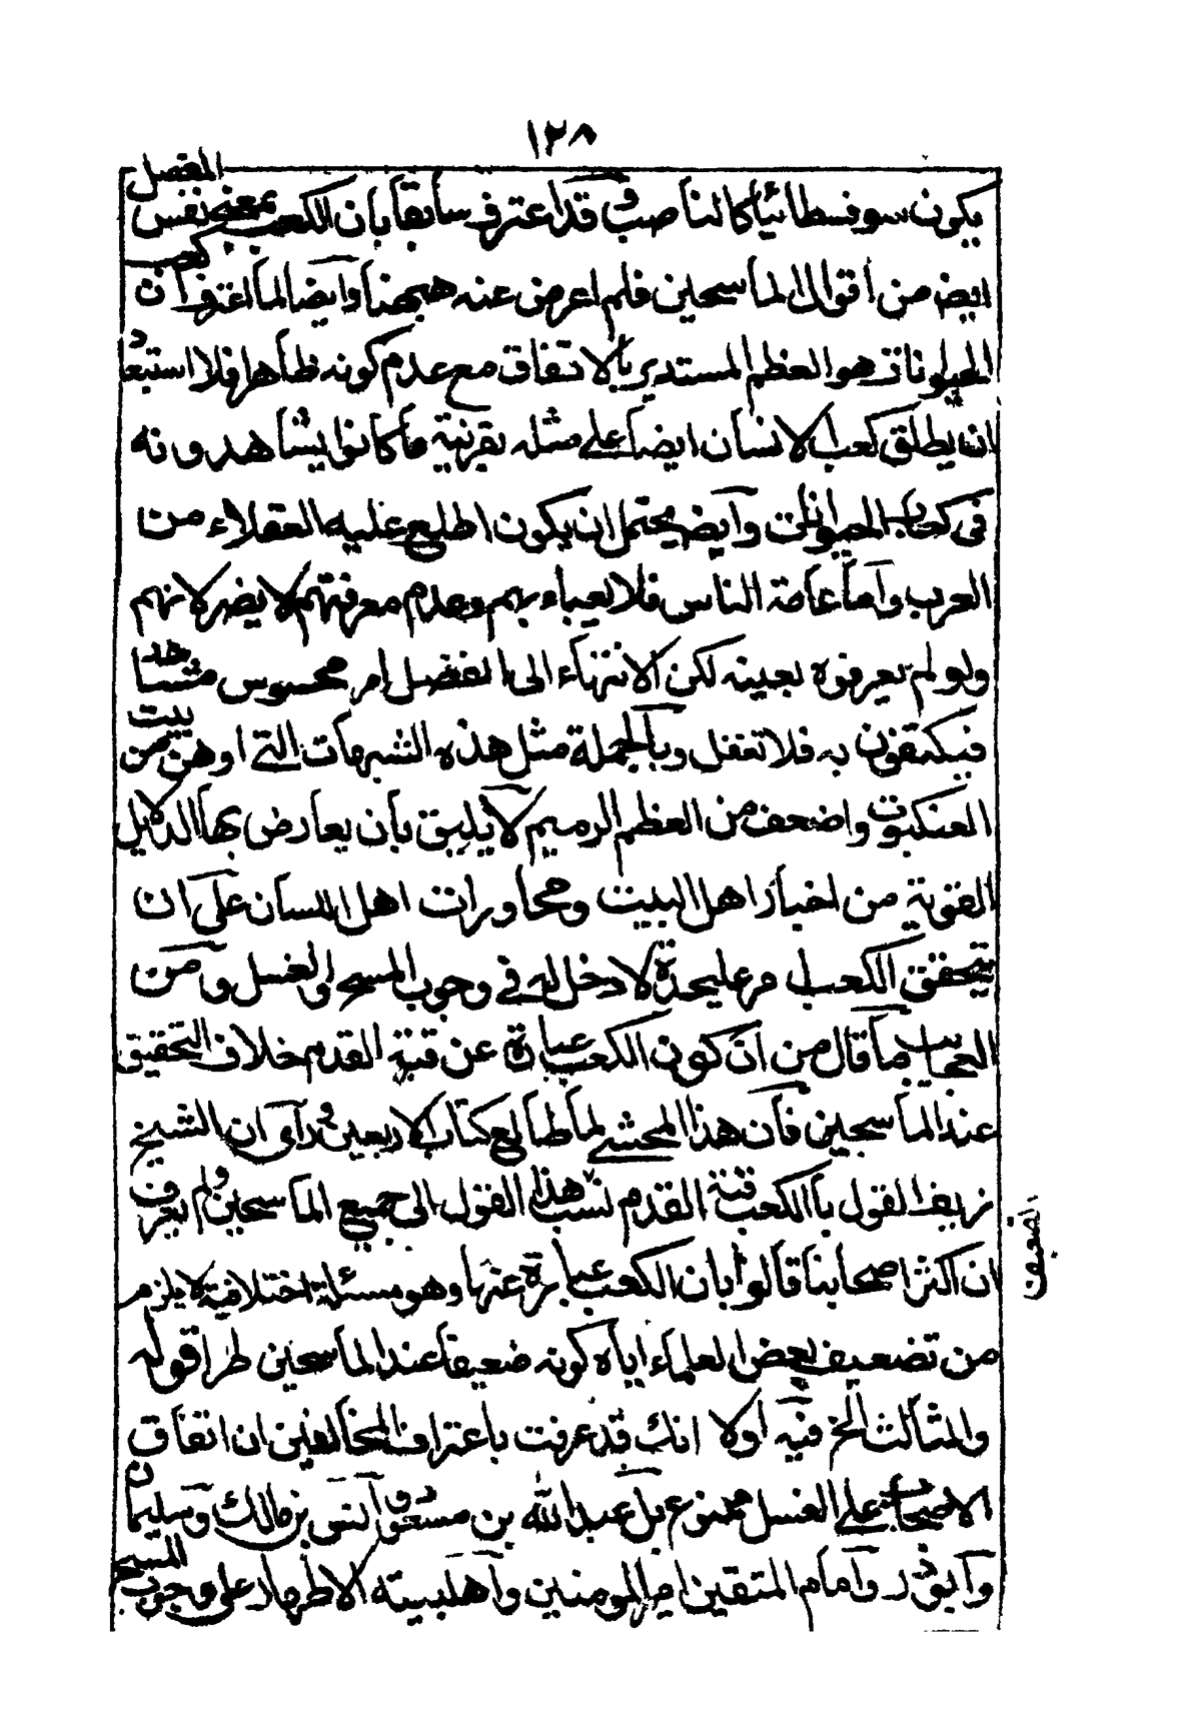 ١٢٨
يكون سوفسطائيا كالناصب وقد اعترف سابقا بان الكعب بمعنى نفس المفصل
ايض من اقوال الماسحين فلم اعرض عنه ههنا وايضا لما اعترف ان كعب
الحيوانات هو العظم المستدير بالاتفاق مع عدم كونه ظاهرا فلا استبعاد
ان يطلق كعب الانسان ايضا على مثله بقرينة ما كانوا يشاهدونه
فى كعاب الحيوانات وايض يحتمل ان يكون اطلع عليه العقلاء من
العرب واما عامة الناس فلا يعباء بهم وعدم معرفتهم لا يضر لانهم
ولو لم يعرفوه بعينه لكن الانتهاء الى المفصل امر محسوس مشاهد
فيكتفون به فلا تغفل وبالجملة مثل هذه الشبهات التى اوهن من بيت
العنكبوت واضعف من العظم الرميم لا يليق بان يعارض بها الدلايل
القوية من اخبار اهل البيت ومحاورات اهل اللسان على ان
تحقق الكعب امر عليحدة لا دخل له فى وجوب المسح والغسل ومن
العجايب ما قال من ان كون الكعب عبارة عن قبة القدم خلاف التحقيق
عند الماسحين فان هذا المحشى لما طالع كتاب الاربعين وراى ان الشيخ
زيف القول بالكعب قبة القدم نسب هذا القول الى جميع الماسحين ولم يعرف
ان اكثر اصحابنا قالوا بان الكعب عبارة عنها وهو مسئلة اختلافية لا يلزم
من تضعيف بعض العلماء اياه كونه ضعيفا عند الماسحين طرا قوله
والثالث الخ فيه اولا انك قد عرفت باعتراف المخالفين ان اتفاق
الاصحاب على الغسل ممنوع بل عبد الله بن مسعود وانس بن مالك وسليمان
وابو ذر وامام المتقين امير المومنين واهلبيته الاطهار على وجوب المسح